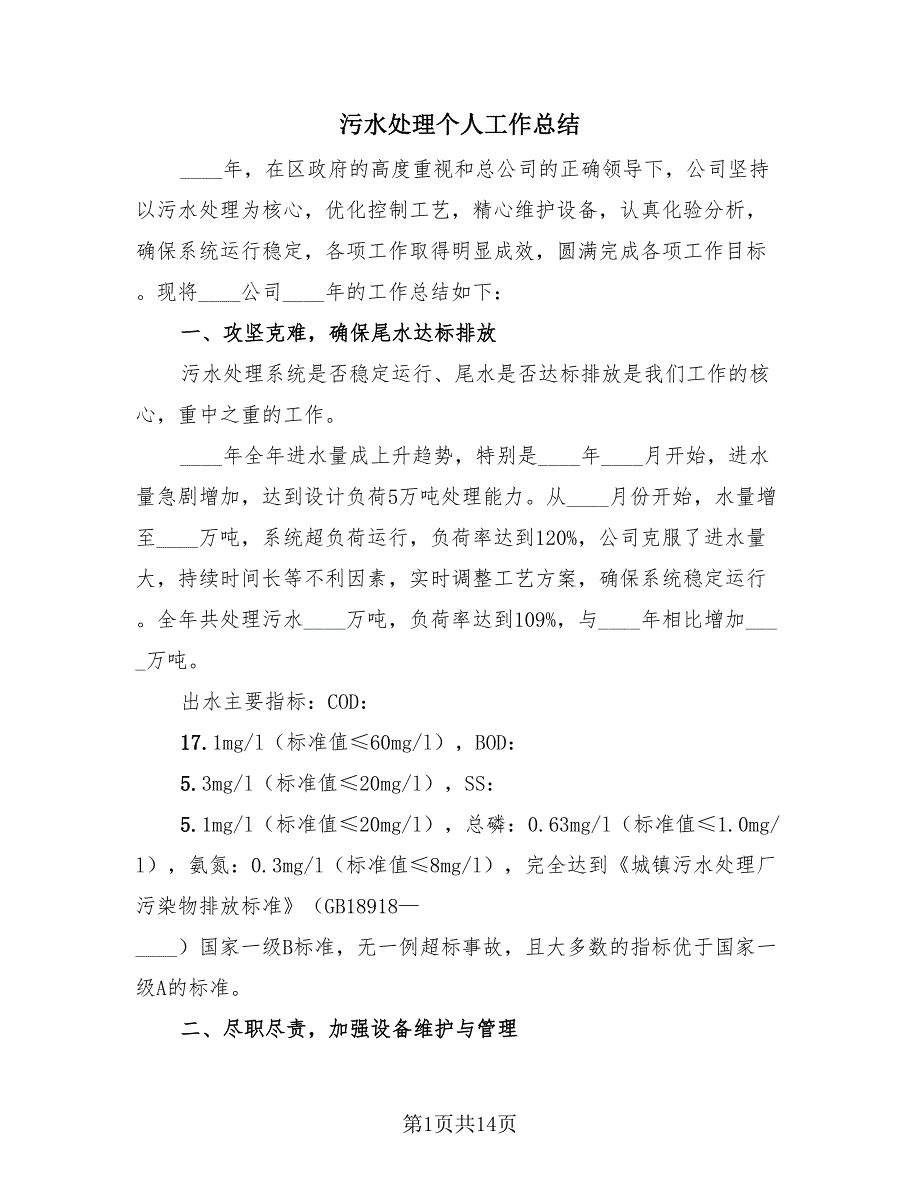 污水处理个人工作总结
____年，在区政府的高度重视和总公司的正确领导下，公司坚持
以污水处理为核心，优化控制工艺，精心维护设备，认真化验分析，
确保系统运行稳定，各项工作取得明显成效，圆满完成各项工作目标
。现将____公司____年的工作总结如下：
一、攻坚克难，确保尾水达标排放
污水处理系统是否稳定运行、尾水是否达标排放是我们工作的核
心，重中之重的工作。
____年全年进水量成上升趋势，特别是____年____月开始，进水
量急剧增加，达到设计负荷5万吨处理能力。从____月份开始，水量增
至____万吨，系统超负荷运行，负荷率达到120%，公司克服了进水量
大，持续时间长等不利因素，实时调整工艺方案，确保系统稳定运行
。全年共处理污水____万吨，负荷率达到109%，与____年相比增加___
_万吨。
出水主要指标：COD：
17.1mg/l（标准值≤60mg/l），BOD：
5.3mg/l（标准值≤20mg/l），SS：
5.1mg/l（标准值≤20mg/l），总磷：0.63mg/l（标准值≤1.0mg/
l），氨氮：0.3mg/l（标准值≤8mg/l），完全达到《城镇污水处理厂
污染物排放标准》（GB18918—
____）国家一级B标准，无一例超标事故，且大多数的指标优于国家一
级A的标准。
二、尽职尽责，加强设备维护与管理
第1页共14页